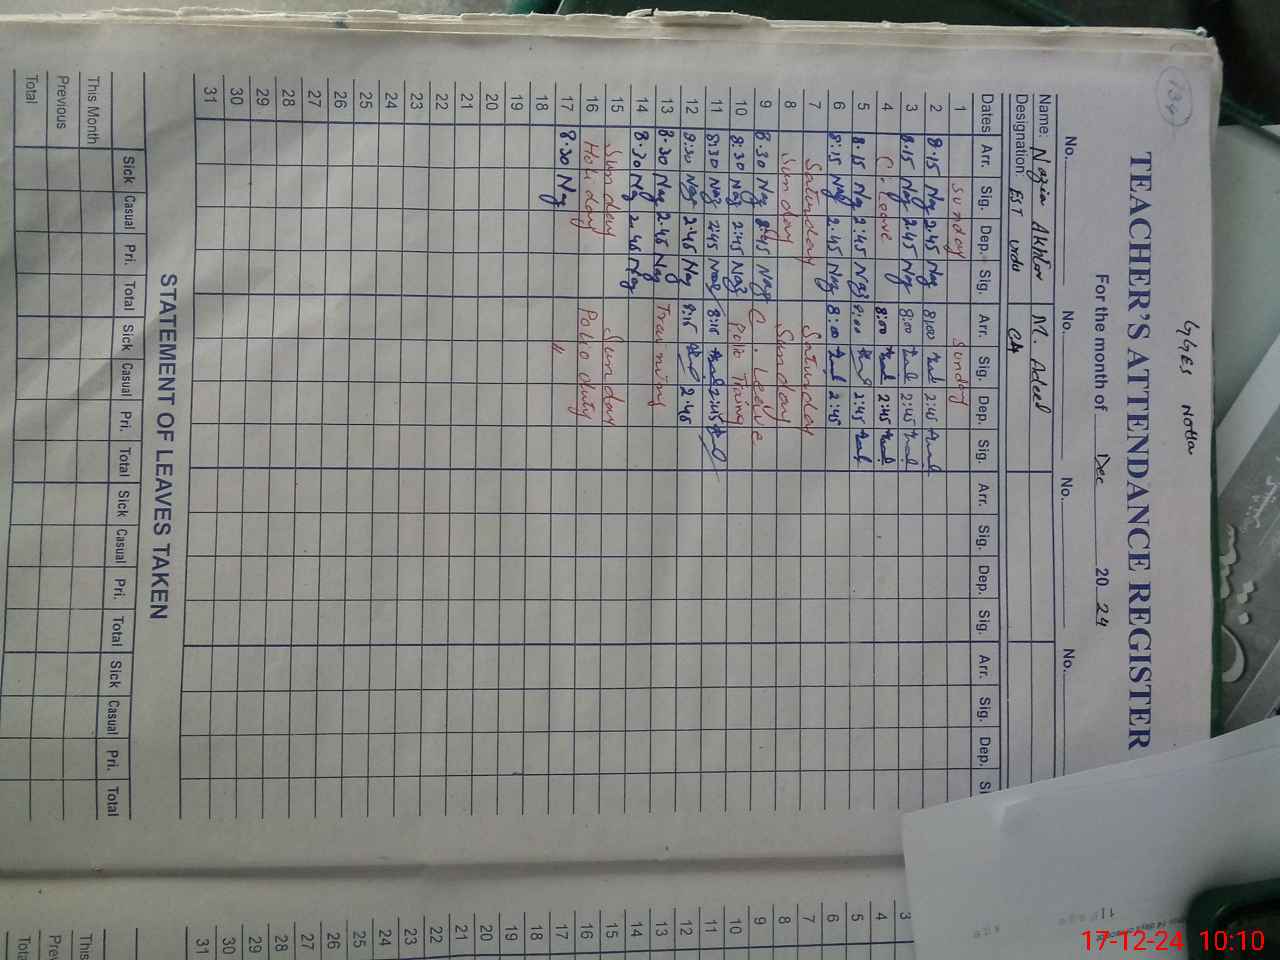 134
GGES Notla
TEACHER'S ATTENDANCE REGISTER
For the month of Dec 2024
No. No. No. No.
Name: Nazia Akhtar M. Adeel
Designation: EST urdu C4
Dates Arr. Sig. Dep. Sig. Arr. Sig. Dep. Sig. Arr. Sig. Dep. Sig. Arr. Sig. Dep. S
1 Sunday Sunday
2 8.15 Naz 2.45 Naz 8:00 2:45
3 8.15 Naz 2.45 Naz 8:00 2:45
4 C. Leave 8:00 2:45
5 8.15 Naz 2:45 Naz 8:00 2:45
6 8:15 Naz 2.45 Naz 8:00 2:45
7 Saturday Saturday
8 Sunday Sunday
9 8.30 Naz 2:45 Naz C. Leave
10 8:30 Naz 2:45 Naz Polio
11 8:30 Naz 2:45 Naz 8:15 2:45
12 8:30 Naz 2.45 Naz 8:15 2.45
13 8.30 Naz 2.45 Naz
14 8.30 Naz 2.45 Naz
15 Sunday Sunday
16 Holiday Polio duty
17 8.30 Naz "
18
19
20
21
22
23
24
25
26
27
28
29
30
31
STATEMENT OF LEAVES TAKEN
Sick Casual Pri. Total Sick Casual Pri. Total Sick Casual Pri. Total Sick Casual Pri. Total
This Month
Previous
Total
3
4
5
6
7
8
9
10
11
12
13
14
15
16
17
18
19
20
21
22
23
24
25
26
27
28
29
30
31
This
Prev
Tota
17-12-24 10:10